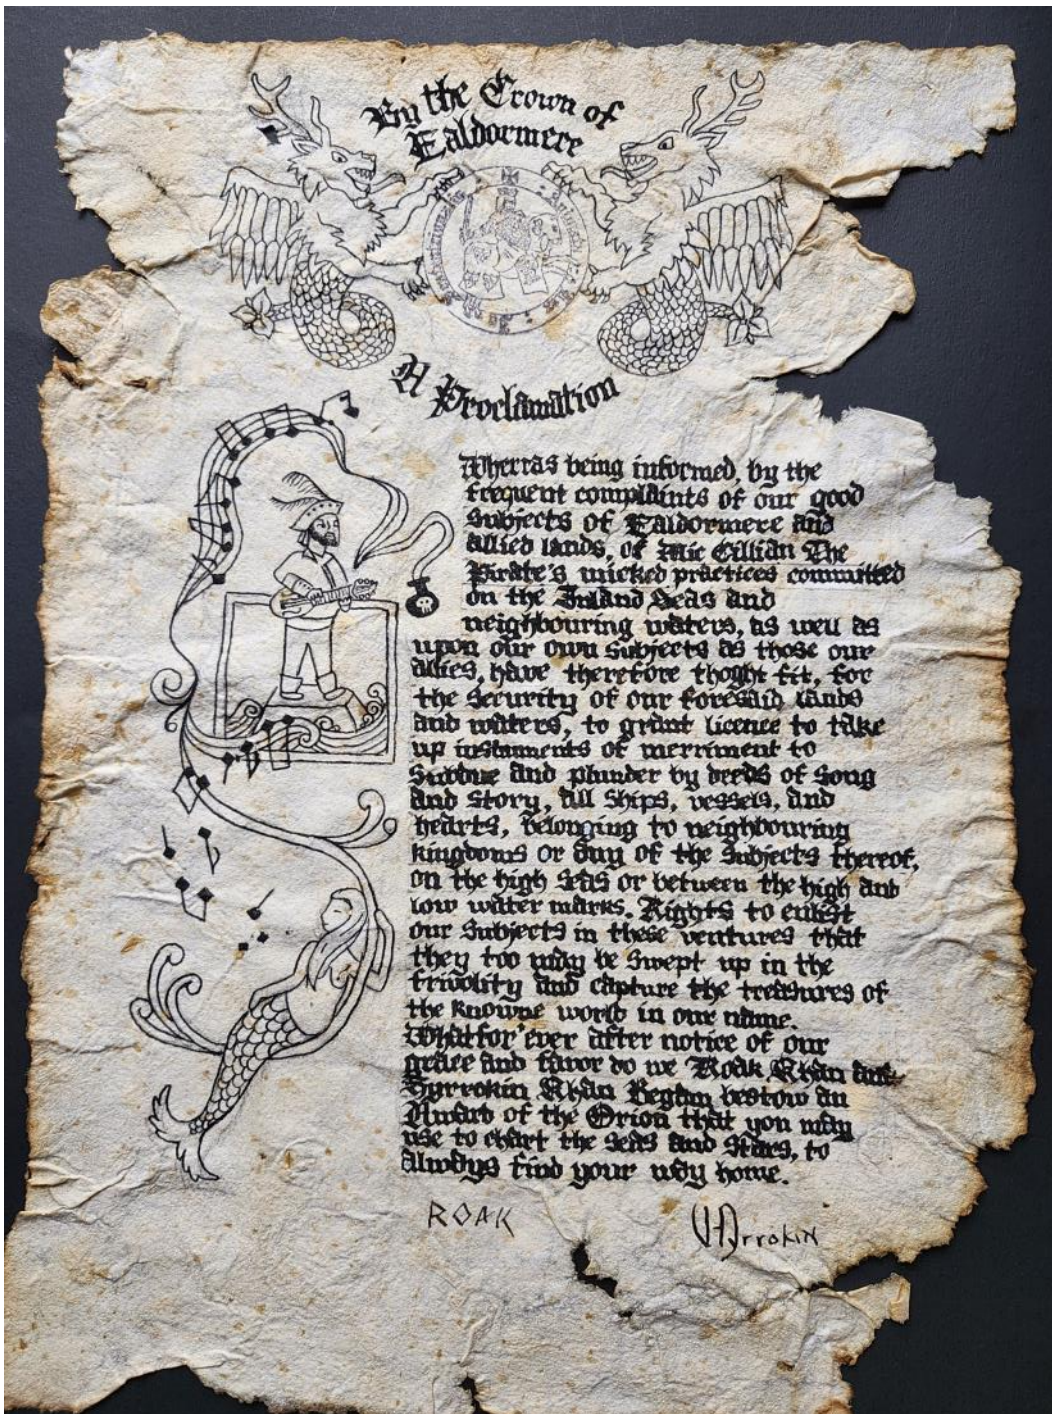 By the Crown of
Ealdormere
A Proclamation
Wherras being informed, by the
frequent complaints of our good
subjects of Ealdormere and
allied lands, of Mic Cillian The
Pirate's wicked practices committed
on the Inland Seas and
neighbouring waters, as well as
upon our own subjects as those our
allies, have therefore thoght fit, for
the security of our foresaid lands
and waters, to grant licence to take
up instuments of merriment to
Subdue and plunder by deeds of song
and story, all ships, vessels, and
hearts, belonging to neighbouring
kingdoms or any of the subjects thereof,
on the high seas or between the high and
low water marks. Rights to enlist
our subjects in these ventures that
they too may be swept up in the
frivolity and capture the treasures of
the knowne world in our name.
Whatfor'ever after notice of our
grace and favor do we Roak Khan and
Hyrrokin Khan Begam bestow an
Award of the Orion that you may
use to chart the seas and stars, to
always find your way home.
ROAK
Hyrrokin